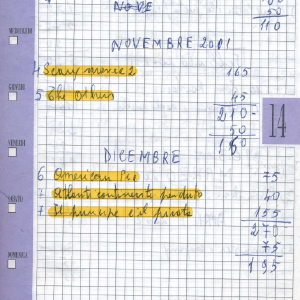 100
50
NOVE 110
MERCOLEDI
NOVEMBRE 2001
4 Scary movie 2 165
GIOVEDI
5 The Others 45
210
50
14
160
VENERDI
DICEMBRE
6 American Pie 75
7 Atlanti continente perduto 40
SABATO
7 Il principe e il pirata 155
270
75
DOMENICA
195